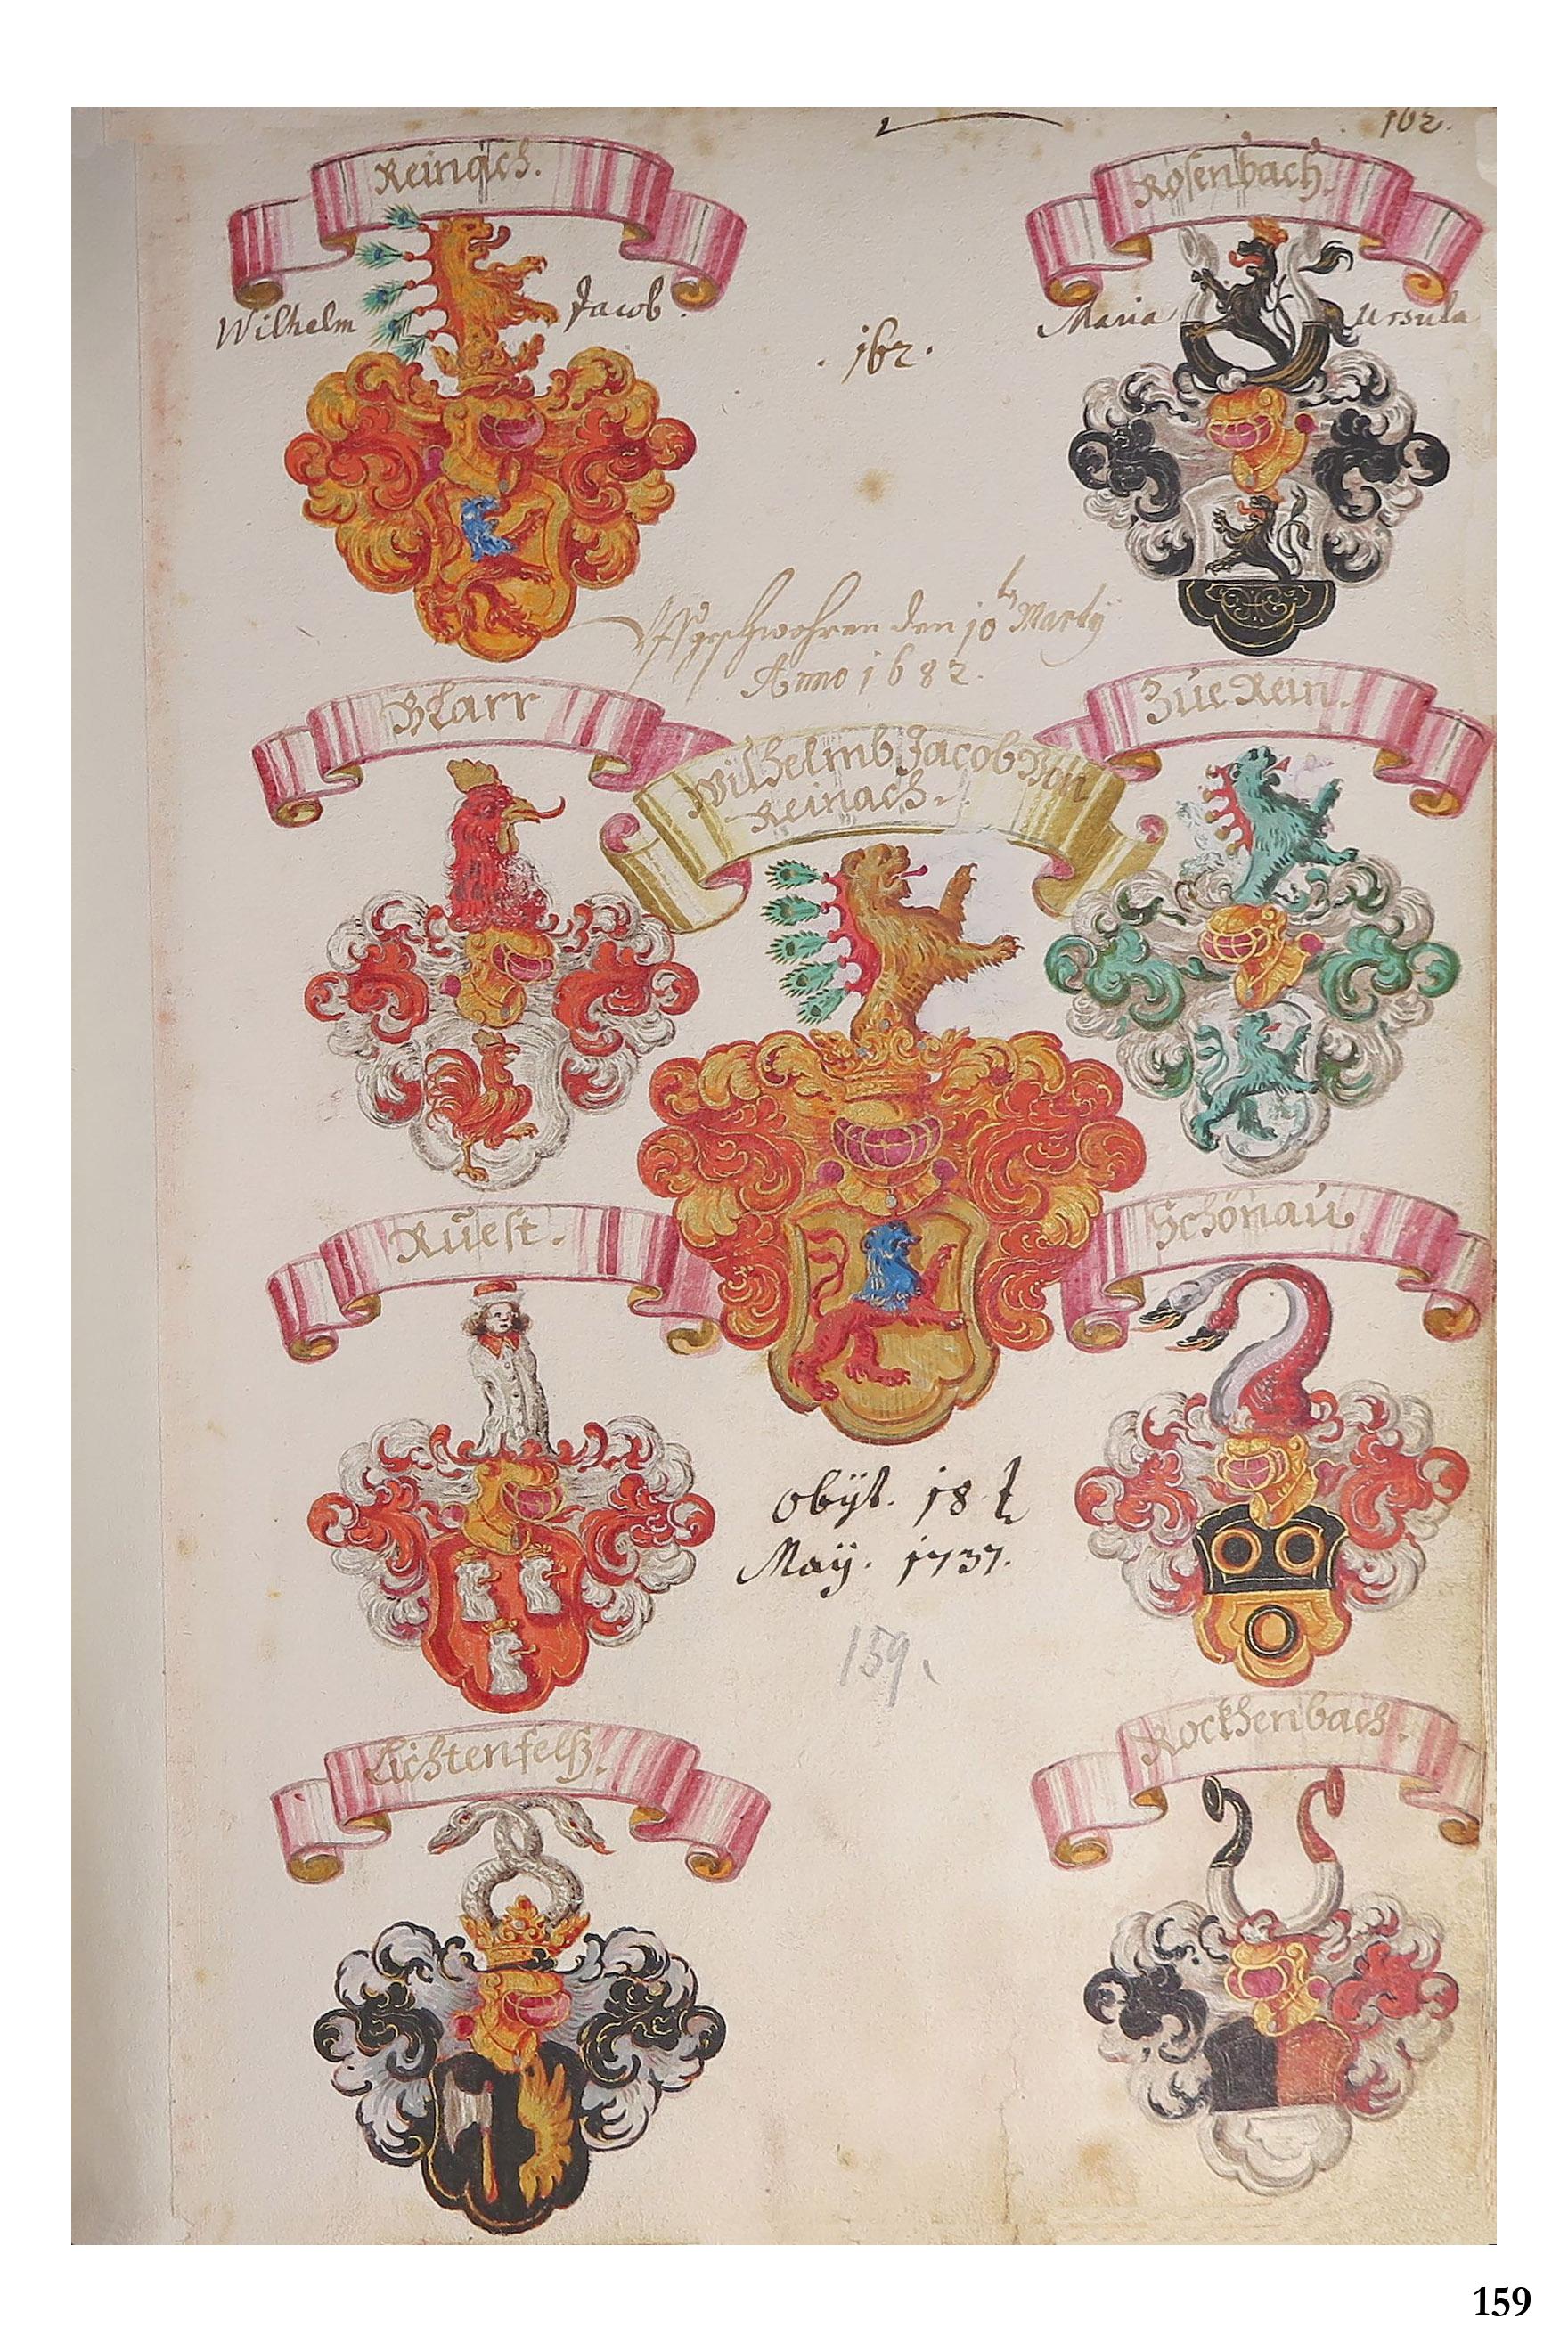 162.
Reinach.
Rosenbach.
Wilhelm Jacob.
Maria Ursula
. 162 .
Uffgeschwohren den 10 ts Marty
Anno 1682.
Blarr
Zue Rein.
Wilhelmb Jacob Von
Reinach.
Rüest.
Schönau
obÿt. 18 t
Maÿ. 1737.
159.
Lichtenfelß.
Rockhenbach.
159